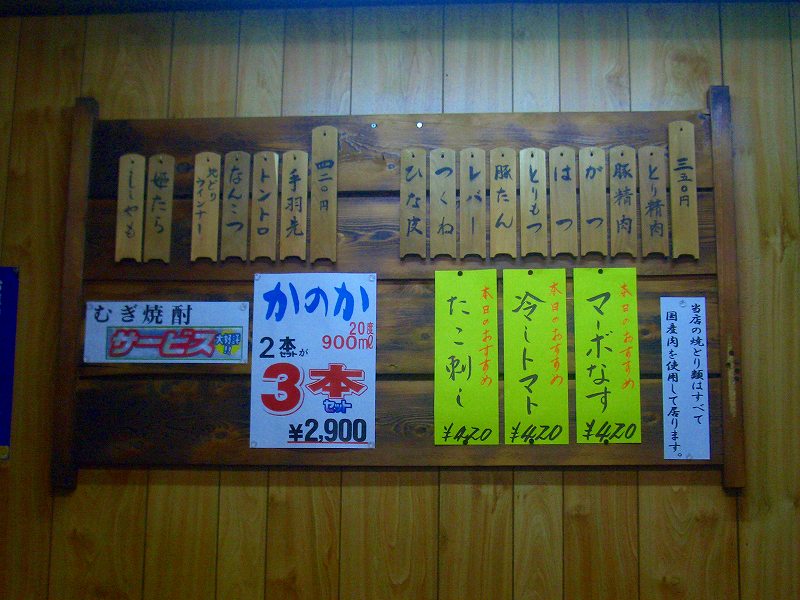 三五〇円
とり精肉
豚精肉
がつ
はつ
とりもつ
豚たん
レバー
つくね
ひな皮
四二〇円
手羽先
トントロ
なんこつ
地どり
ウインナー
姫たら
ししゃも
むぎ焼酎
サービス
かのか
20度
900ml
2本
セットが
3本
セット
¥2,900
本日のおすすめ
たこ刺し
¥420
本日のおすすめ
冷しトマト
¥420
本日のおすすめ
マーボなす
¥420
当店の焼とり類はすべて
国産肉を使用して居ります。